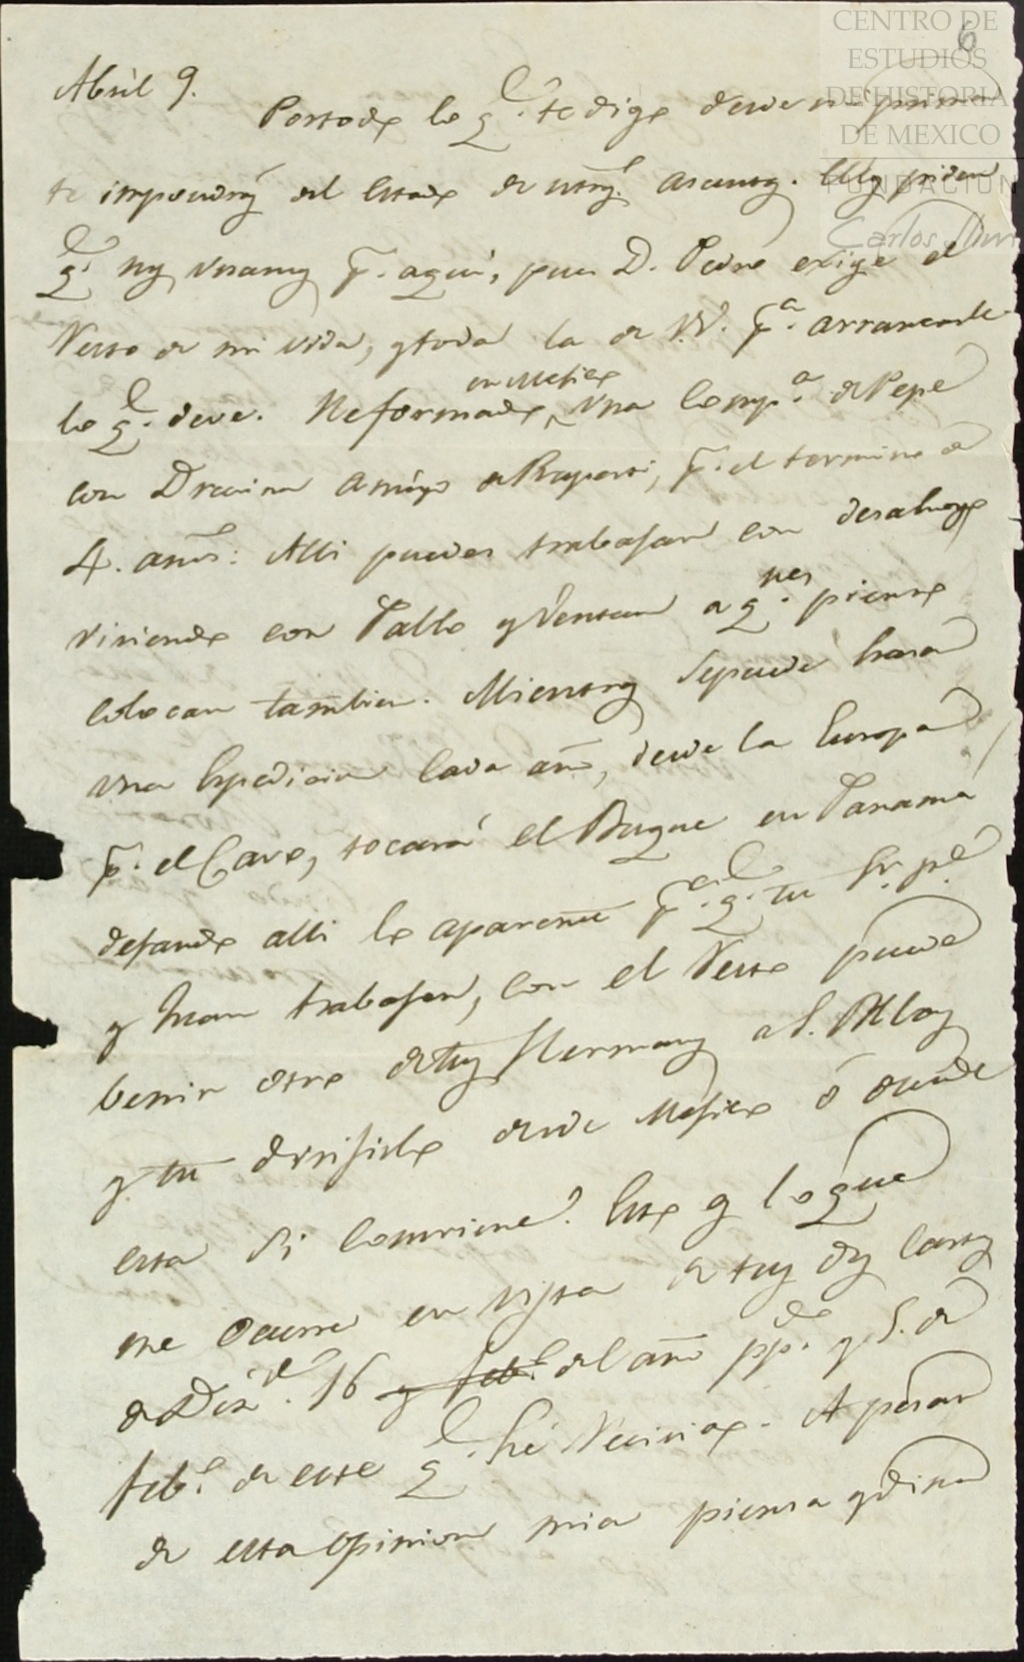 CENTRO DE
ESTUDIOS
DE HISTORIA
DE MEXICO
FUNDACION
Carlos Slim
6
Abril 9.
Por todo lo q.e te dige desde un principio
te impondrás del estado de ntros. asuntos. Ellos piden
q.e nos unamos p.r aquí, pues D. Pedro exige el
resto de mi vida, y toda la de VV. p.a arrancarle
lo q.e deve. He formado, en Mejico una Comp.a de Pepe
con Drusina amigo de Ruperti, p.r el termino de
4. años: Alli puedes trabajar con desahogo
viviendo con Pablo y Ventura a q.nes pienso
colocar tambien. Mientras se puede hacer
una Expedicion cada año, desde la Europa
p.r el Cavo, tocará el Buque en Panamá
dejando alli lo aparente p.a q.e tu Sr. p.e
y Juan trabajen, con el resto puede
benir otro de tus Hermanos a S. Blas
y tu dirijirlo desde Mejico ó desde
esta si combiene. Esto es lo que
me ocurre en vista de tus dos cartas
de Dix.e 16 y feb.o del año pp.do y 5. de
feb.o de este q.e hé recivido. A pesar
de esta opinion mia piensa y dime